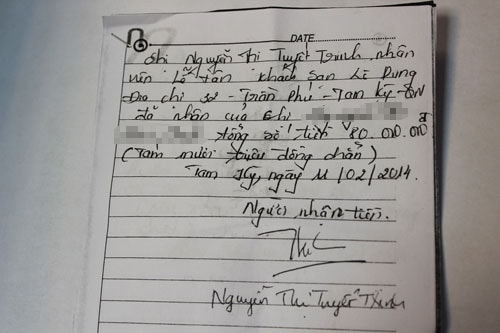 DATE
Chị Nguyễn Thị Tuyết Trinh, nhân
viên Lễ tân khách sạn Lê Dung
Địa chỉ 32 - Trần Phú - Tam Kỳ - QN
đã nhận của chị
tổng số tiền 80.000.000đ
(Tám mươi triệu đồng chẵn)
Tam Kỳ, ngày 11/02/2014.
Người nhận tiền.
Nguyễn Thị Tuyết Trinh